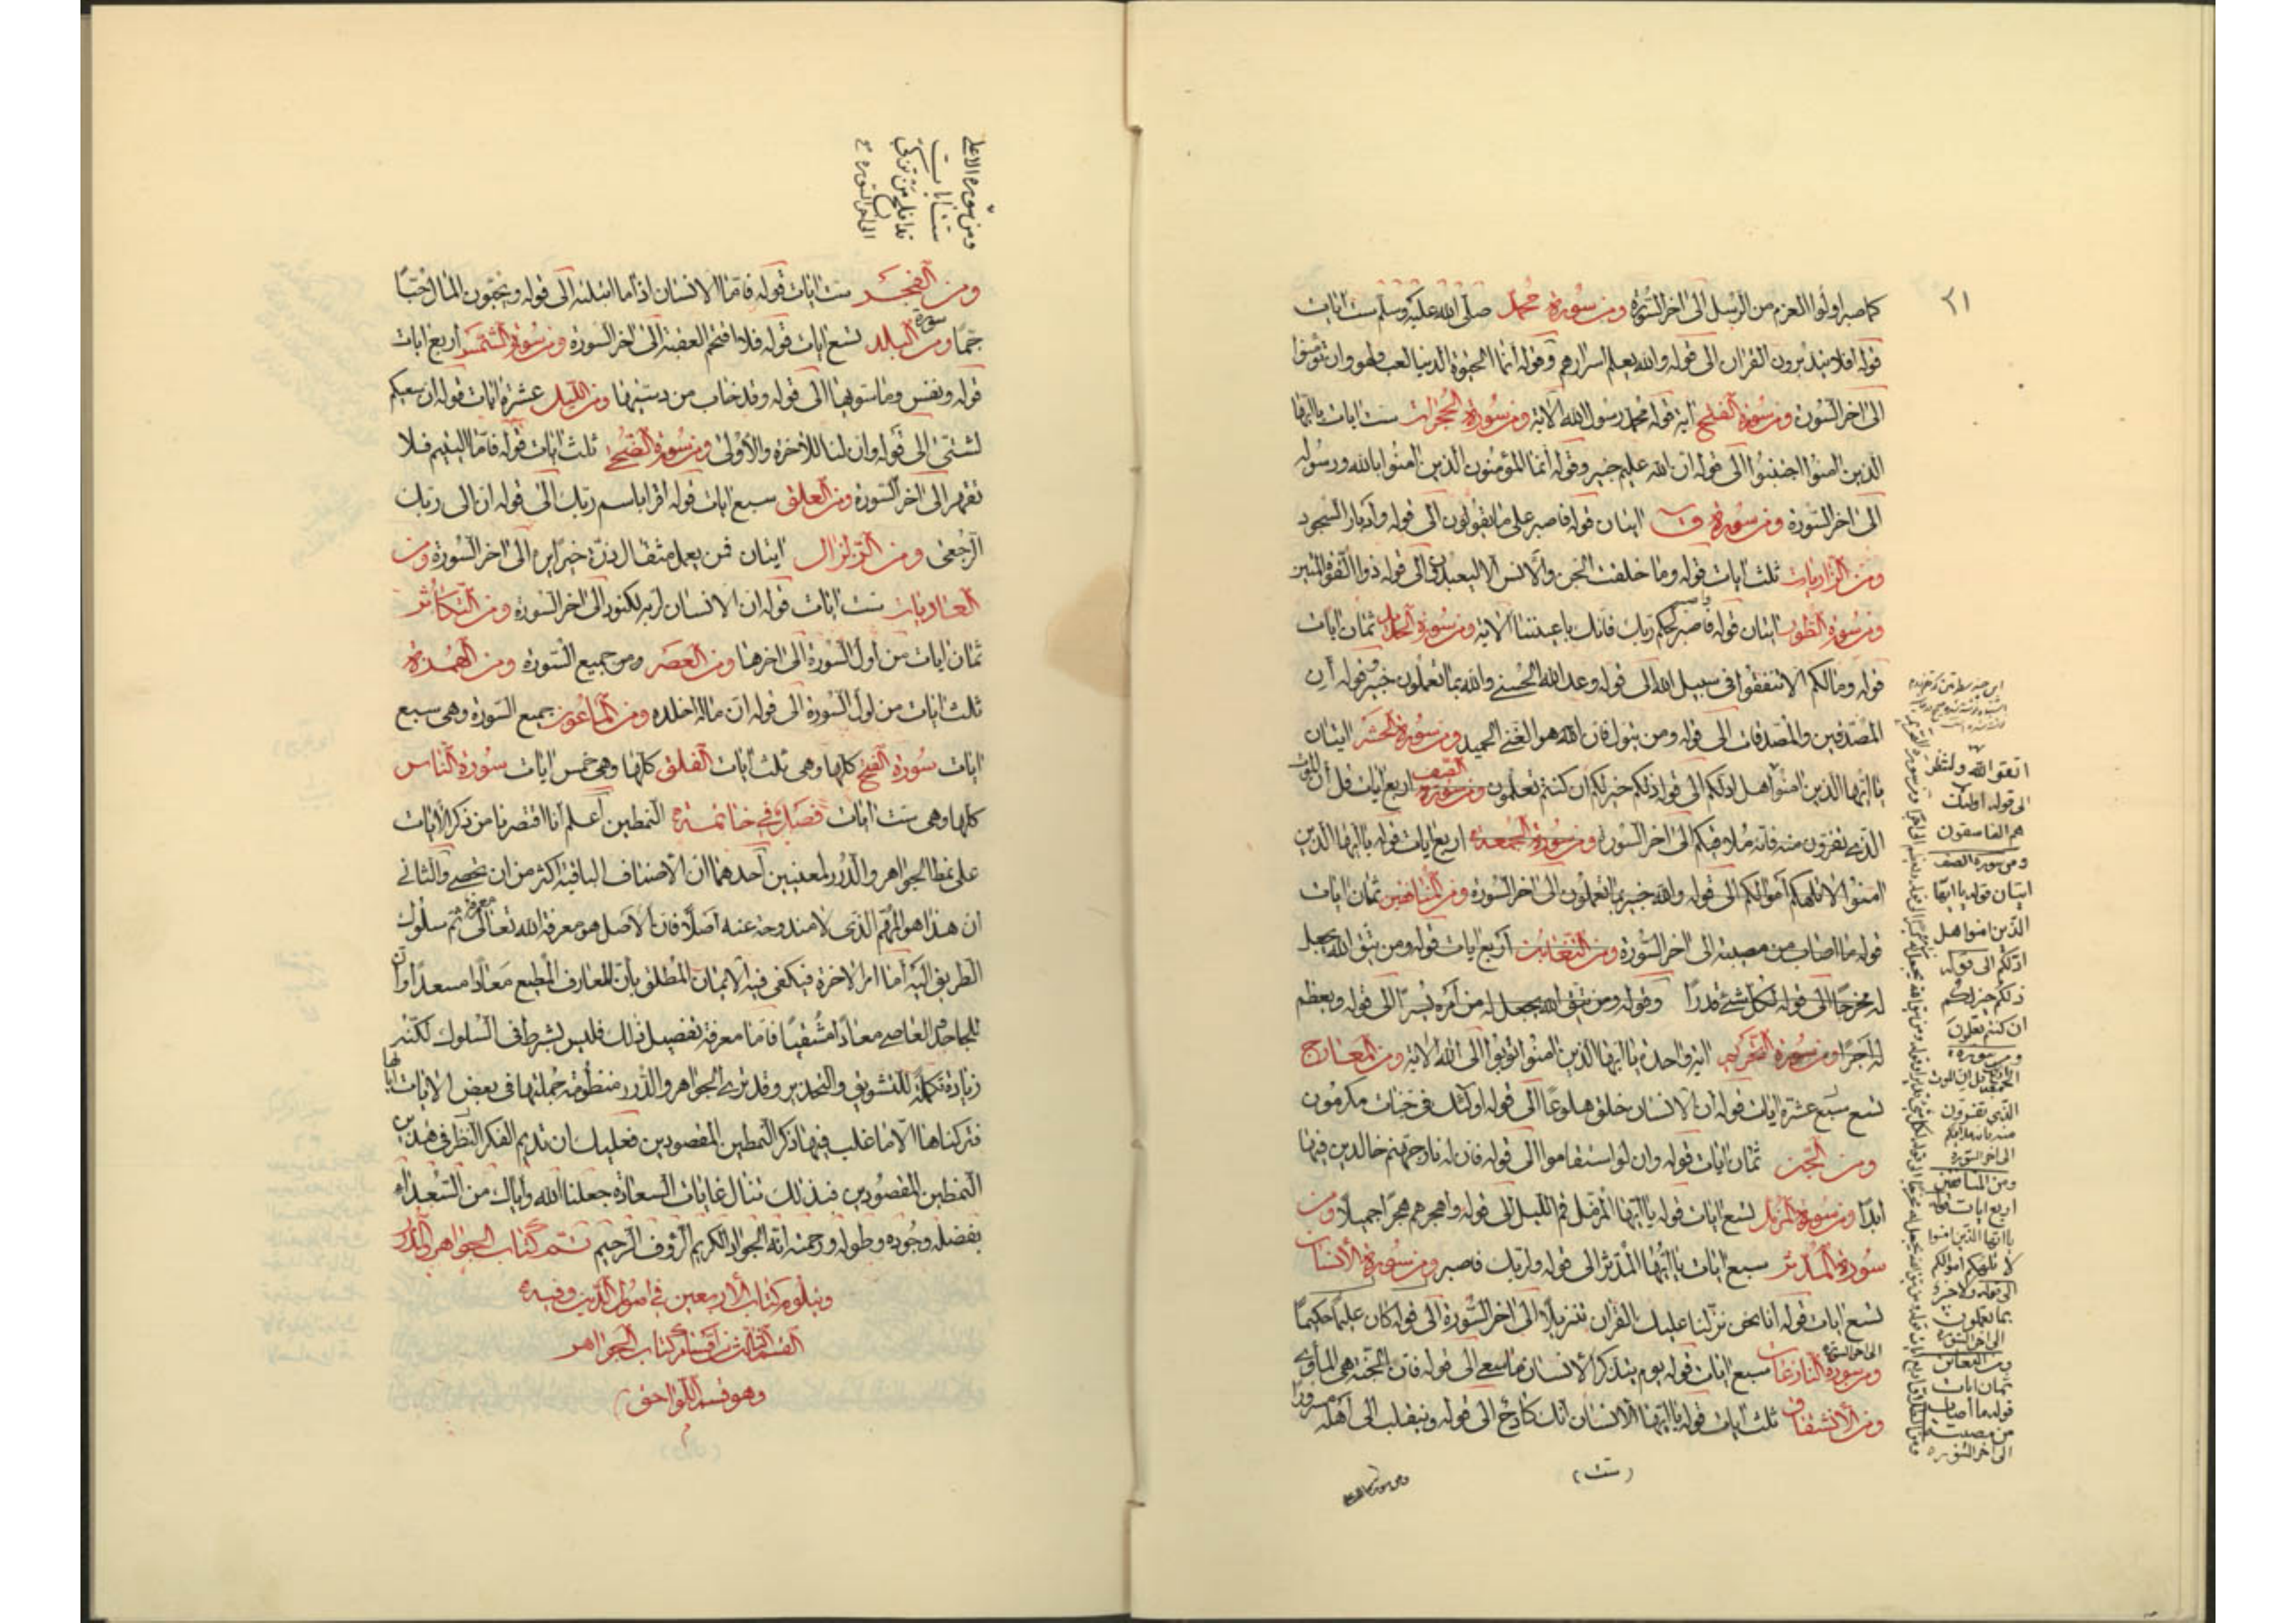 ٢١
كما صبر اولوا العزم من الرسل الى اخر السورة ومن سورة محمد صلى الله عليه وسلم ست ايات
قوله افلا يتدبرون القران الى قوله والله يعلم اسرارهم وقوله انما الحيوة الدنيا لعب ولهو وان تؤمنوا
الى اخر السورة ومن سورة الفتح اية قوله محمد رسول الله الاية ومن سورة الحجرات ست ايات يا ايها
الذين امنوا اجتنبوا الى قوله ان الله عليم خبير وقوله انما المؤمنون الذين امنوا بالله ورسوله
الى اخر السورة ومن سورة ق ايتان قوله فاصبر على ما يقولون الى قوله وادبار السجود
ومن الذاريات ثلث ايات قوله وما خلقت الجن والانس الا ليعبدون الى قوله ذو القوة المتين
ومن سورة الطور ايتان قوله واصبر لحكم ربك فانك باعيننا الاية ومن سورة الحديد ثمان ايات
قوله ومالكم الا تنفقوا في سبيل الله الى قوله وعد الله الحسنى والله بما تعملون خبير وقوله ان
المصدقين والمصدقات الى قوله ومن يتول فان الله هو الغني الحميد ومن سورة الحشر ايتان
يا ايها الذين امنوا هل ادلكم الى قوله ذلكم خير لكم ان كنتم تعلمون ومن سورة الصف اربع ايات قل ان الموت
الذي تفرون منه فانه ملاقيكم الى اخر السورة ومن سورة الجمعة اربع ايات قوله يا ايها الذين
امنوا لا تلهكم اموالكم الى قوله والله خبير بما تعملون الى اخر السورة ومن المنافقين ثمان ايات
قوله ما اصاب من مصيبة الى اخر السورة ومن التغابن اربع ايات قوله ومن يتق الله يجعل
له مخرجا الى قوله لكل شئ قدرا وقوله ومن يتق الله يجعل له من امره يسرا الى قوله ويعظم
له اجرا ومن سورة التحريم اية واحدة يا ايها الذين امنوا توبوا الى الله الاية ومن المعارج
تسع عشرة ايات قوله ان الانسان خلق هلوعا الى قوله اولئك في جنات مكرمون
ومن الجن ثمان ايات قوله وان لو استقاموا الى قوله فان له نار جهنم خالدين فيها
ابدا ومن سورة المزمل تسع ايات قوله يا ايها المزمل قم الليل الى قوله واهجرهم هجرا جميلا ومن
سورة المدثر سبع ايات يا ايها المدثر الى قوله ولربك فاصبر ومن سورة الانسان
تسع ايات قوله انا نحن نزلنا عليك القران تنزيلا الى اخر السورة الى قوله كان عليما حكيما
الى اخر السورة
ومن سورة النازعات سبع ايات قوله يوم يتذكر الانسان ما سعى الى قوله فان الجنة هي المأوى
ومن الانشقاق ثلث ايات قوله يا ايها الانسان انك كادح الى قوله وينقلب الى اهله مسرورا
(ست)
اتقوا الله ولتنظر
الى قوله اولئك
هم الفاسقون
ومن سورة الصف
ايتان قوله يا ايها
الذين امنوا هل
ادلكم الى قوله
ذلكم خير لكم
ان كنتم تعلمون
ومن سورة
الجمعة قل ان الموت
الذي تفرون
منه فانه ملاقيكم
الى اخر السورة
ومن المنافقين
اربع ايات قوله
يا ايها الذين امنوا
لا تلهكم اموالكم
بما تعملون
الى اخر السورة
ومن التغابن
ثمان ايات
قوله ما اصاب
من مصيبة
الى اخر السورة
ومن سورة الاعلى
ست ايات
قد افلح من تزكى
الى اخر السورة
ومن الفجر ست ايات قوله فاما الانسان اذا ما ابتليه الى قوله ويحبون المال حبا
جما ومن سورة البلد تسع ايات قوله فلا اقتحم العقبة الى اخر السورة ومن سورة الشمس اربع ايات
قوله ونفس وما سويها الى قوله وقد خاب من دسيها ومن الليل عشرة ايات قوله ان سعيكم
لشتى الى قوله وان لنا للاخرة والاولى ومن سورة الضحى ثلث ايات قوله فاما اليتيم فلا
تقهر الى اخر السورة ومن العلق سبع ايات قوله اقرا باسم ربك الى قوله ان الى ربك
الرجعى ومن الزلزال ايتان فمن يعمل مثقال ذرة خيرا يره الى اخر السورة ومن
العاديات ست ايات قوله ان الانسان لربه لكنود الى اخر السورة ومن التكاثر
ثمان ايات من اول السورة الى اخرها ومن العصر ومن جميع السورة ومن الهمزة
ثلث ايات من اول السورة الى قوله ان ماله اخلده ومن الماعون جميع السورة وهي سبع
ايات سورة الفتح كلها وهي ثلث ايات الفلق كلها وهي خمس ايات سورة الناس
كلها وهي ست ايات فصل في خاتمة النمطين اعلم انا اقتصرنا من ذكر الايات
على نمط الجواهر والدرر لمعنيين احدهما ان الاصناف الباقية اكثر من ان تحصى والثاني
ان هذا هو المهم الذي لا مندوحة عنه اصلا فان الاصل هو معرفة الله تعالى ثم معرفة سلوك
الطريق اليه اما امر الاخرة فيكفي فيه الايمان المطلق بان للعارف المطيع معادا مسعدا وان
للجاحد العاصي معادا مشقيا فاما معرفة تفصيل ذلك فليس بشرط في السلوك لكنه
زيادة تكملة للتشويق والتحذير وقد نرى الجواهر والدرر منظومة جملتها في بعض الايات
فتركناها الا ما غلب فيها ذكر النمطين المقصودين فعليك ان تديم الفكر النظر في هذين
النمطين المقصودين فبذلك تنال غايات السعادة جعلنا الله واياك من السعداء
بفضله وجوده وطوله ورحمته انه الجواد الكريم الرؤف الرحيم تم كتاب الجواهر والدرر
ويتلوه كتاب الاربعين في اصول الدين وفيه
القسم الثالث من اقسام كتاب الجواهر
وهو قسم اللواحق